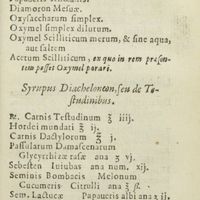 Diamoron Mesuæ.
Oxysaccharum simplex.
Oxymel simplex dilutum.
Oxymel Scilliticum merum, & sine aqua,
aut saltem
Acetum Scilliticum, ex quo in rem præsen-
tem posset Oxymel parari.
Syrupus Diachelonωn, seu de Te-
studinibus.
℞. Carnis Testudinum ℥ iiij.
Hordei mundati ℥ ij.
Carnis Dactylorum ℥ j.
Passularum Damascenarum
Glycyrrhizæ rasæ ana ʒ vj.
Sebesten Iuiubas ana num. xij.
Seminis Bombacis Melonum
Cucumeris Citrulli ana ℥ ß.
Sem. Lactucæ Papaueris albi ana ʒ ij.